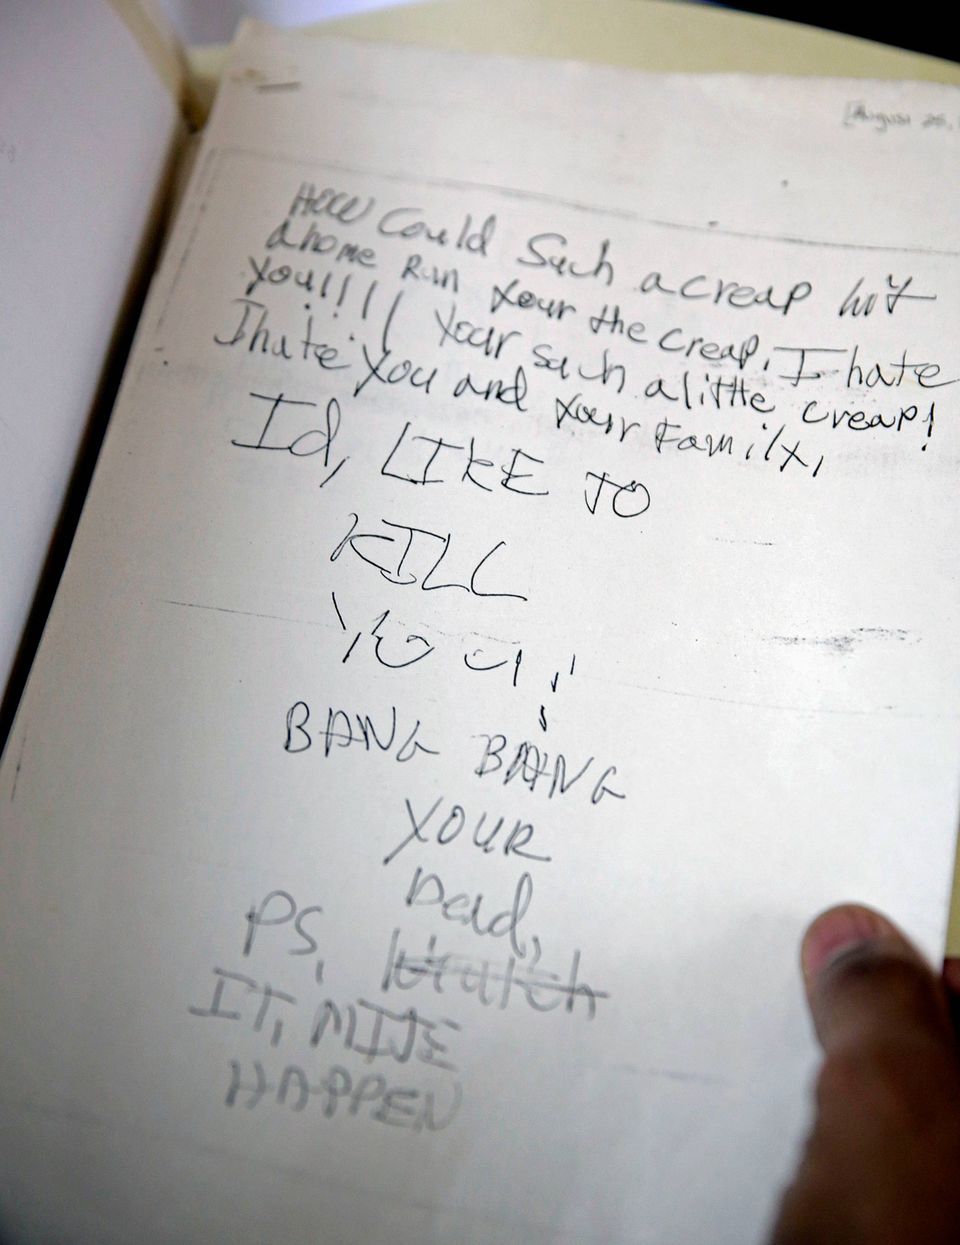 [August 25,
How Could Such a creap hit
a home Run your the creap, I hate
you!!!! Your such a little creap!
I hate you and your Family,
Id, LIKE TO
KILL
YOU!
BANG BANG
YOUR
Dead,
PS,
IT, MITE
HAPPEN